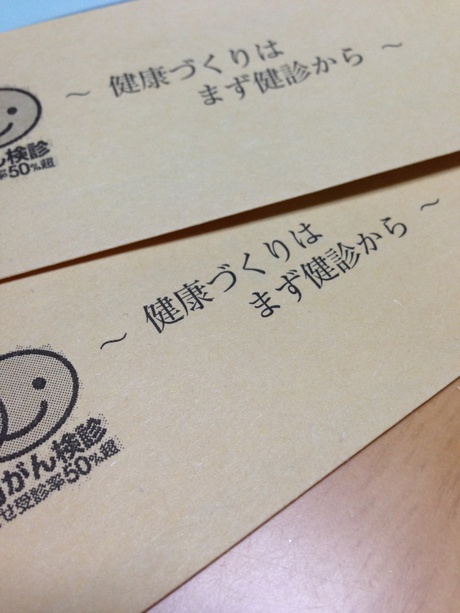 ～ 健康づくりは
まず健診から ～
ん検診
率50%超
～ 健康づくりは
まず健診から ～
がん検診
せ受診率50%超